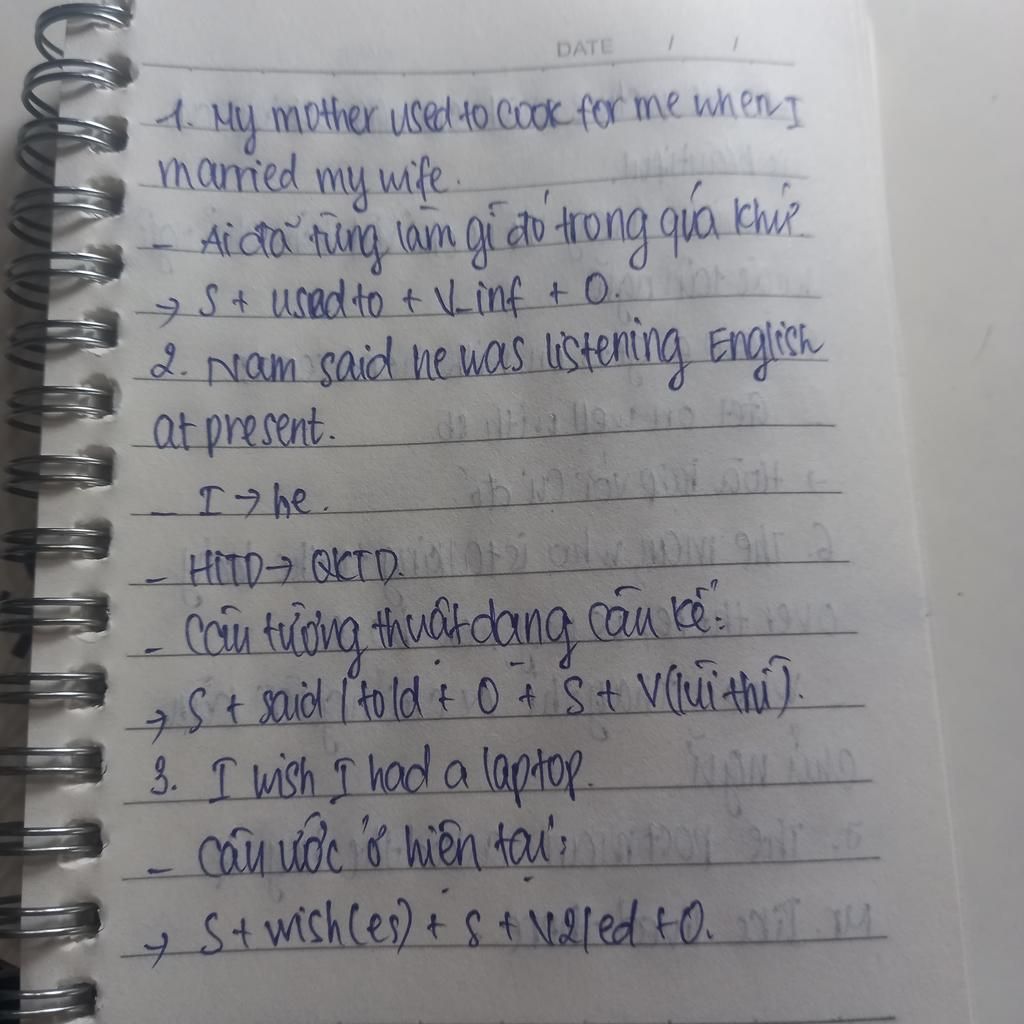 DATE / /
1. My mother used to cook for me when I
married my wife.
- Ai đã từng làm gì đó trong quá khứ
→ S + used to + V_inf + O.
2. Nam said he was listening English
at present.
- I → he.
- HTTD → QKTD.
- Câu tường thuật dạng câu kể:
→ S + said / told + O + S + V(lùi thì).
3. I wish I had a laptop.
- Câu ước ở hiện tại:
→ S + wish(es) + S + V2/ed + O.